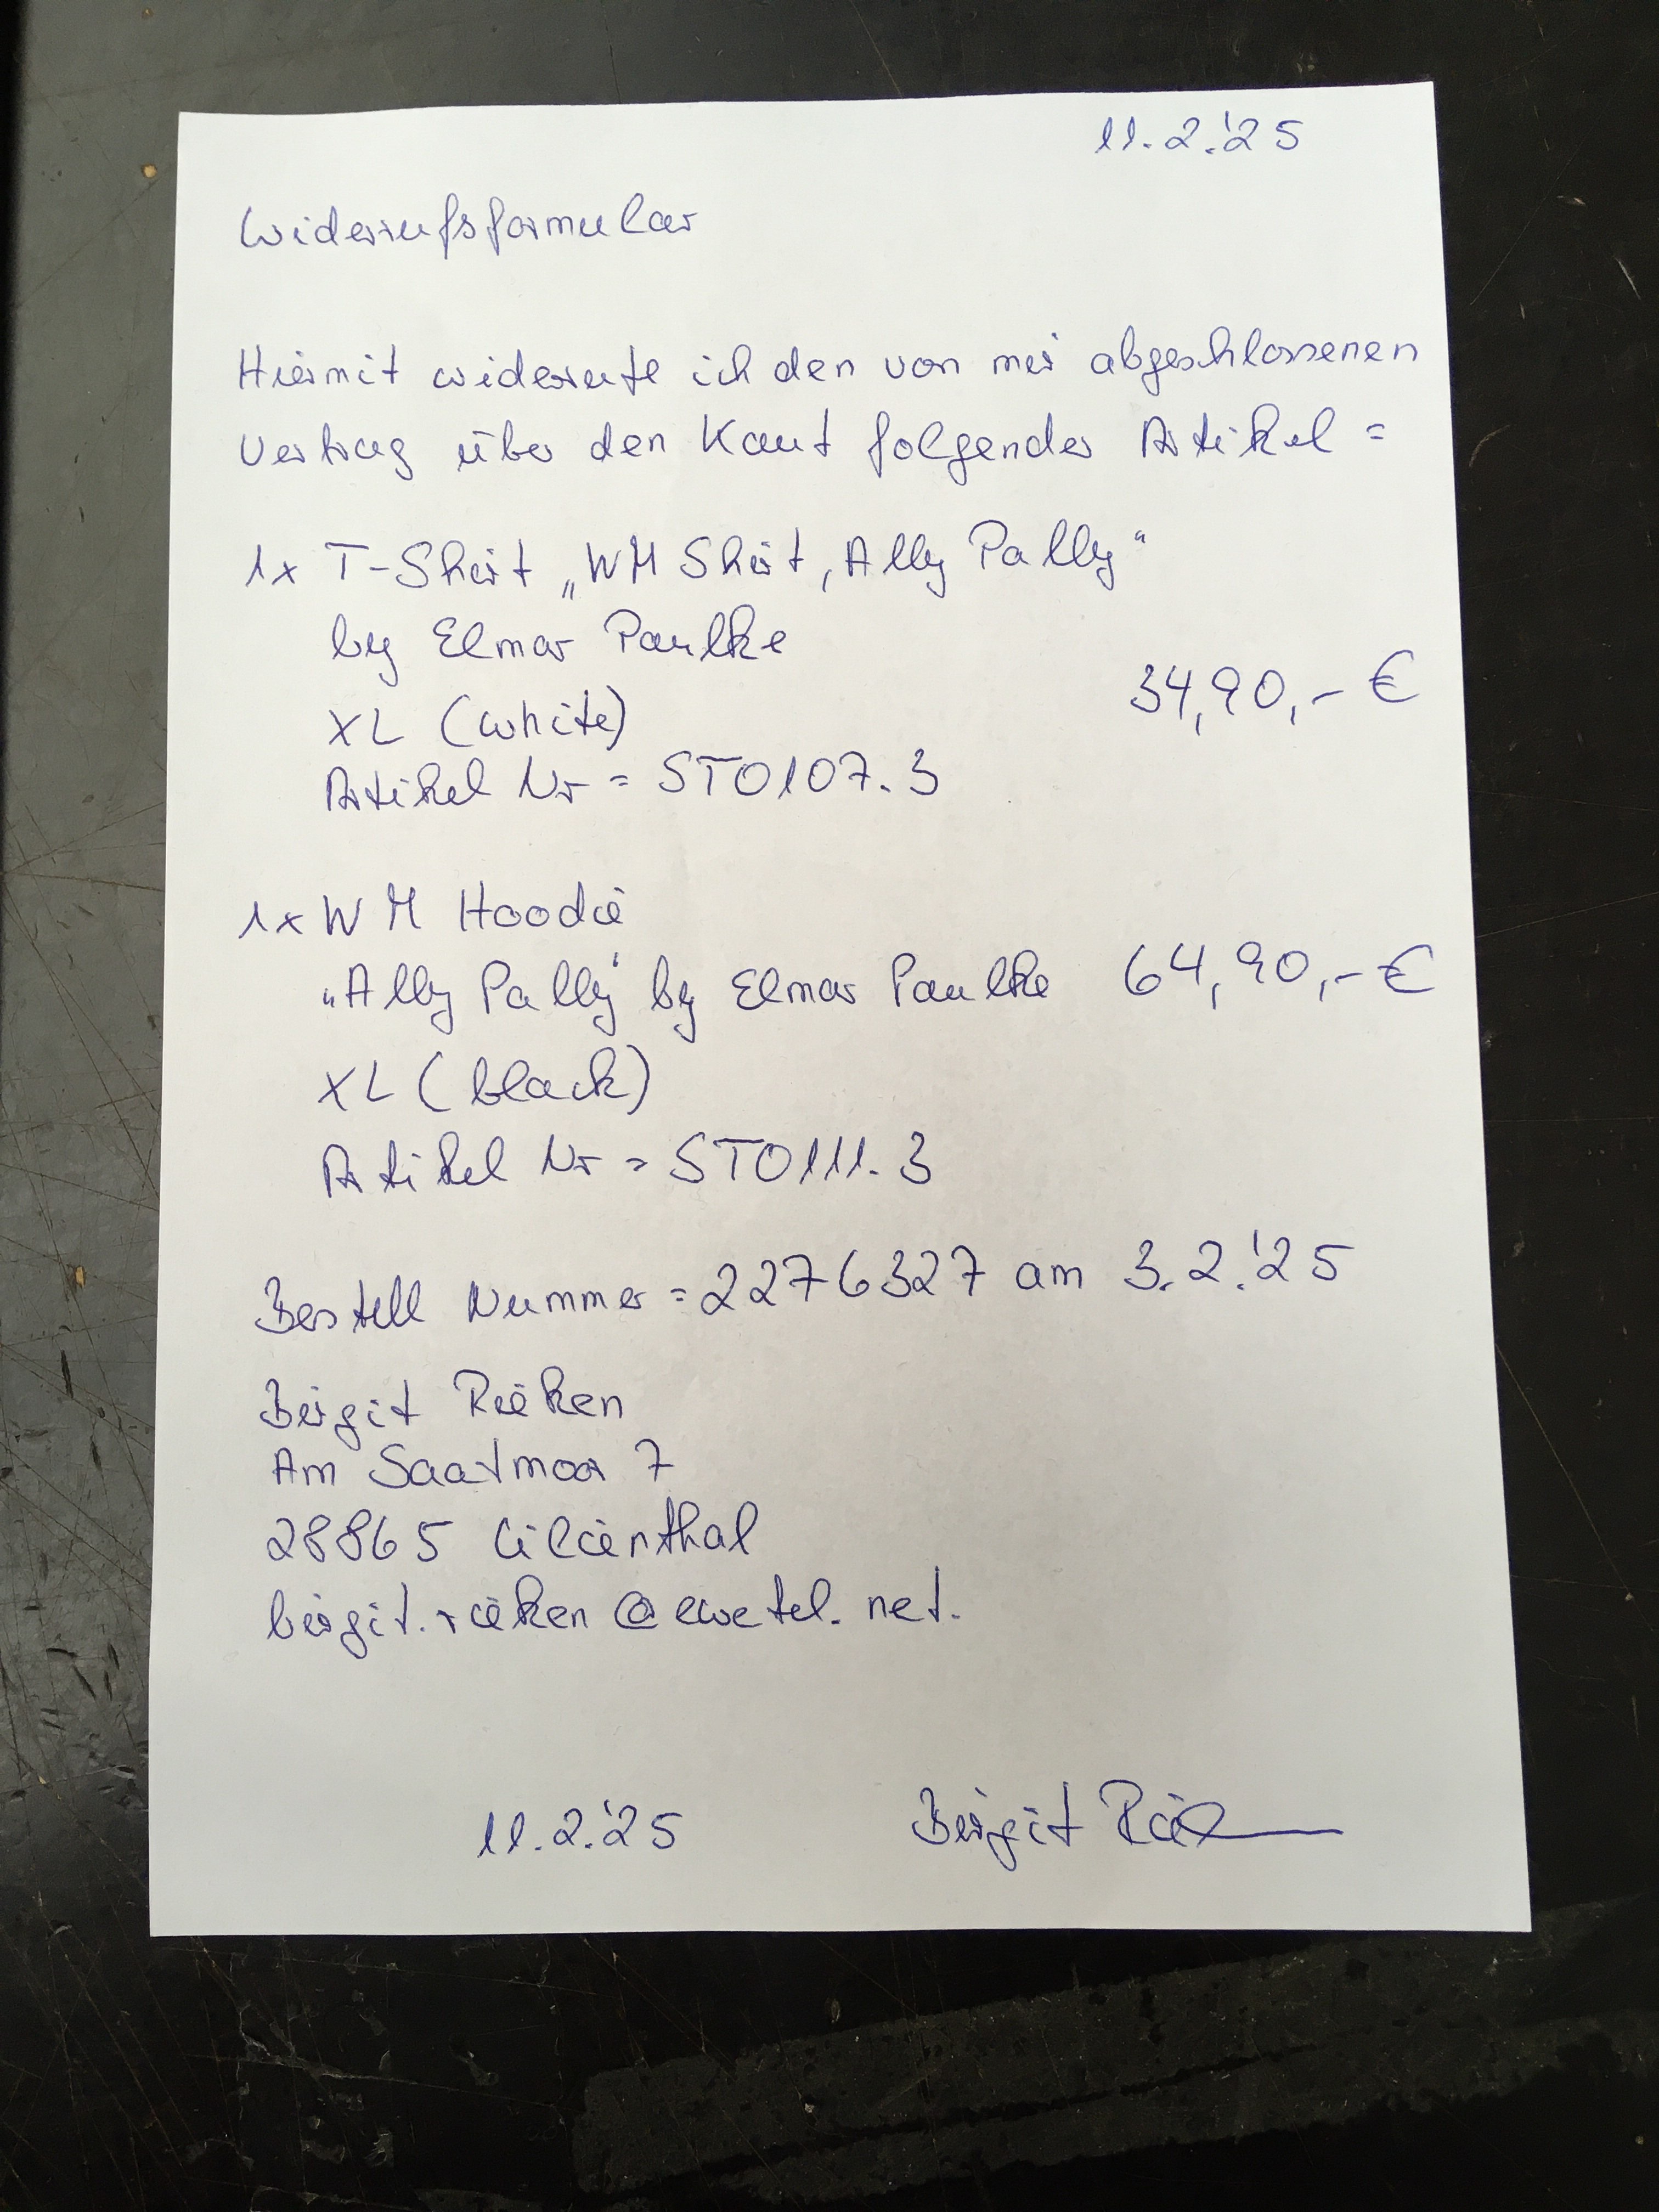 11.2.'25
Widerrufsformular
Hiermit widerrufe ich den von mir abgeschlossenen
Vertrag über den Kauf folgender Artikel =
1x T-Shirt „WM Shirt, Ally Pally"
by Elmar Paulke
34,90,- €
XL (white)
Artikel Nr = STO107.3
1x WM Hoodie
„Ally Pally" by Elmar Paulke 64,90,- €
XL (black)
Artikel Nr = STO111.3
Bestell Nummer = 2276327 am 3.2.'25
Birgit Rieken
Am Saatmoor 7
28865 Lilienthal
birgit.rieken@ewetel.net.
11.2.'25 Birgit Rieken